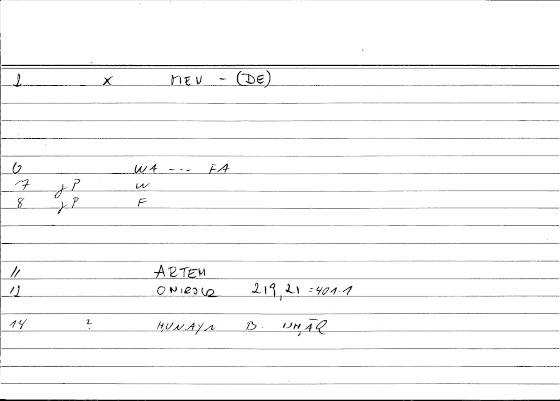 1 x MEN - (DE)
6 WA --- FA
7 γP W
8 γP F
11 ARTEM
12 ONIROCR 219,21 = 401.1
14 ? HUNAYN B. ISḤĀQ